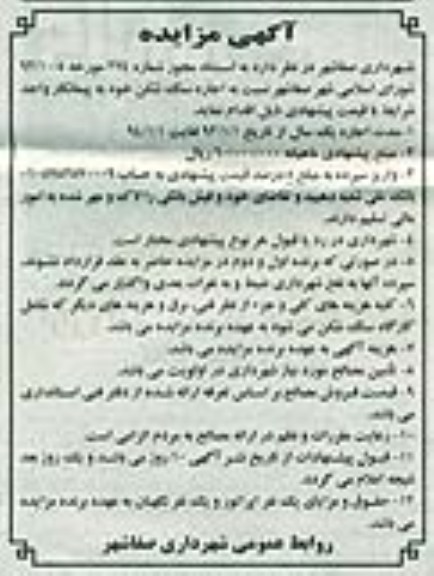 آگهی مزایده
شهرداری صفاشهر در نظر دارد به استناد مجوز شماره مورخه
شورای اسلامی شهر صفاشهر نسبت به اجاره سنگ شکن خود به پیمانکار واجد
شرایط با قیمت پیشنهادی ذیل اقدام نماید.
۱- مدت اجاره یک سال از تاریخ لغایت
۲- مبلغ پیشنهادی ماهیانه ریال
۳- واریز سپرده به مبلغ درصد قیمت پیشنهادی به حساب
بانک ملی شعبه و تقاضای خود و فیش بانکی را لاک و مهر شده به امور
مالی تسلیم دارند.
۴- شهرداری در رد یا قبول هر نوع پیشنهادی مختار است.
۵- در صورتی که برنده اول و دوم در مزایده حاضر به عقد قرارداد نشوند،
سپرده آنها به نفع شهرداری ضبط و به نفرات بعدی واگذار می گردد.
۶- کلیه هزینه های کلی و جزء از نظر فنی، برق و هزینه های دیگر که شامل
کارگاه سنگ شکن می شود به عهده برنده مزایده می باشد.
۷- هزینه آگهی به عهده برنده مزایده می باشد.
۸- تأمین مصالح مورد نیاز شهرداری در اولویت می باشد.
۹- قیمت فروش مصالح بر اساس تعرفه ارائه شده از دفتر فنی استانداری
می باشد.
۱۰- رعایت مقررات و نظم در ارائه مصالح به مردم الزامی است.
۱۱- قبول پیشنهادات از تاریخ نشر آگهی ۱۰ روز می باشد و یک روز بعد
نتیجه اعلام می گردد.
۱۲- حقوق و مزایای یک نفر اپراتور و یک نفر نگهبان به عهده برنده مزایده
می باشد.
روابط عمومی شهرداری صفاشهر